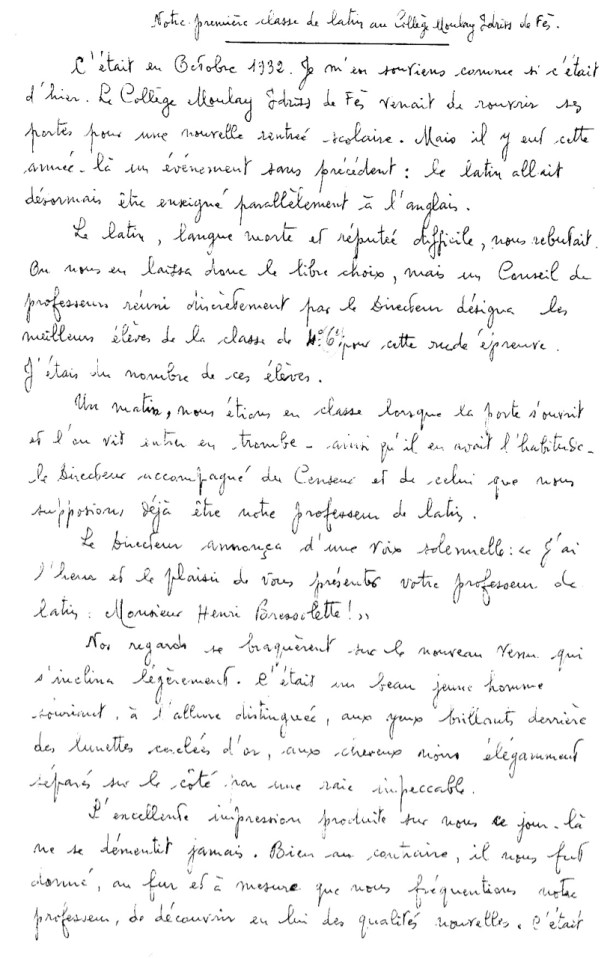 Notre première classe de latin au Collège Moulay Idriss de Fès.
C'était en Octobre 1932. Je m'en souviens comme si c'était
d'hier. Le Collège Moulay Idriss de Fès venait de rouvrir ses
portes pour une nouvelle rentrée scolaire. Mais il y eut cette
année-là un événement sans précédent : le latin allait
désormais être enseigné parallèlement à l'anglais.
Le latin, langue morte et réputée difficile, nous rebutait.
On nous en laissa donc le libre choix, mais un Conseil de
professeurs réuni discrètement par le Directeur désigna les
meilleurs élèves de la classe de pour cette rude épreuve.
J'étais du nombre de ces élèves.
Un matin, nous étions en classe lorsque la porte s'ouvrit
et l'on vit entrer en trombe - ainsi qu'il en avait l'habitude -
le Directeur accompagné du Censeur et de celui que nous
supposions déjà être notre professeur de latin.
Le Directeur annonça d'une voix solennelle : « J'ai
l'heur et le plaisir de vous présenter votre professeur de
latin : Monsieur Henri Bressolette ! »
Nos regards se braquèrent sur le nouveau venu qui
s'inclina légèrement. C'était un beau jeune homme
souriant, à l'allure distinguée, aux yeux brillants derrière
des lunettes cerclées d'or, aux cheveux noirs élégamment
séparés sur le côté par une raie impeccable.
L'excellente impression produite sur nous ce jour-là
ne se démentit jamais. Bien au contraire, il nous fut
donné, au fur et à mesure que nous fréquentions notre
professeur, de découvrir en lui des qualités nouvelles. C'était